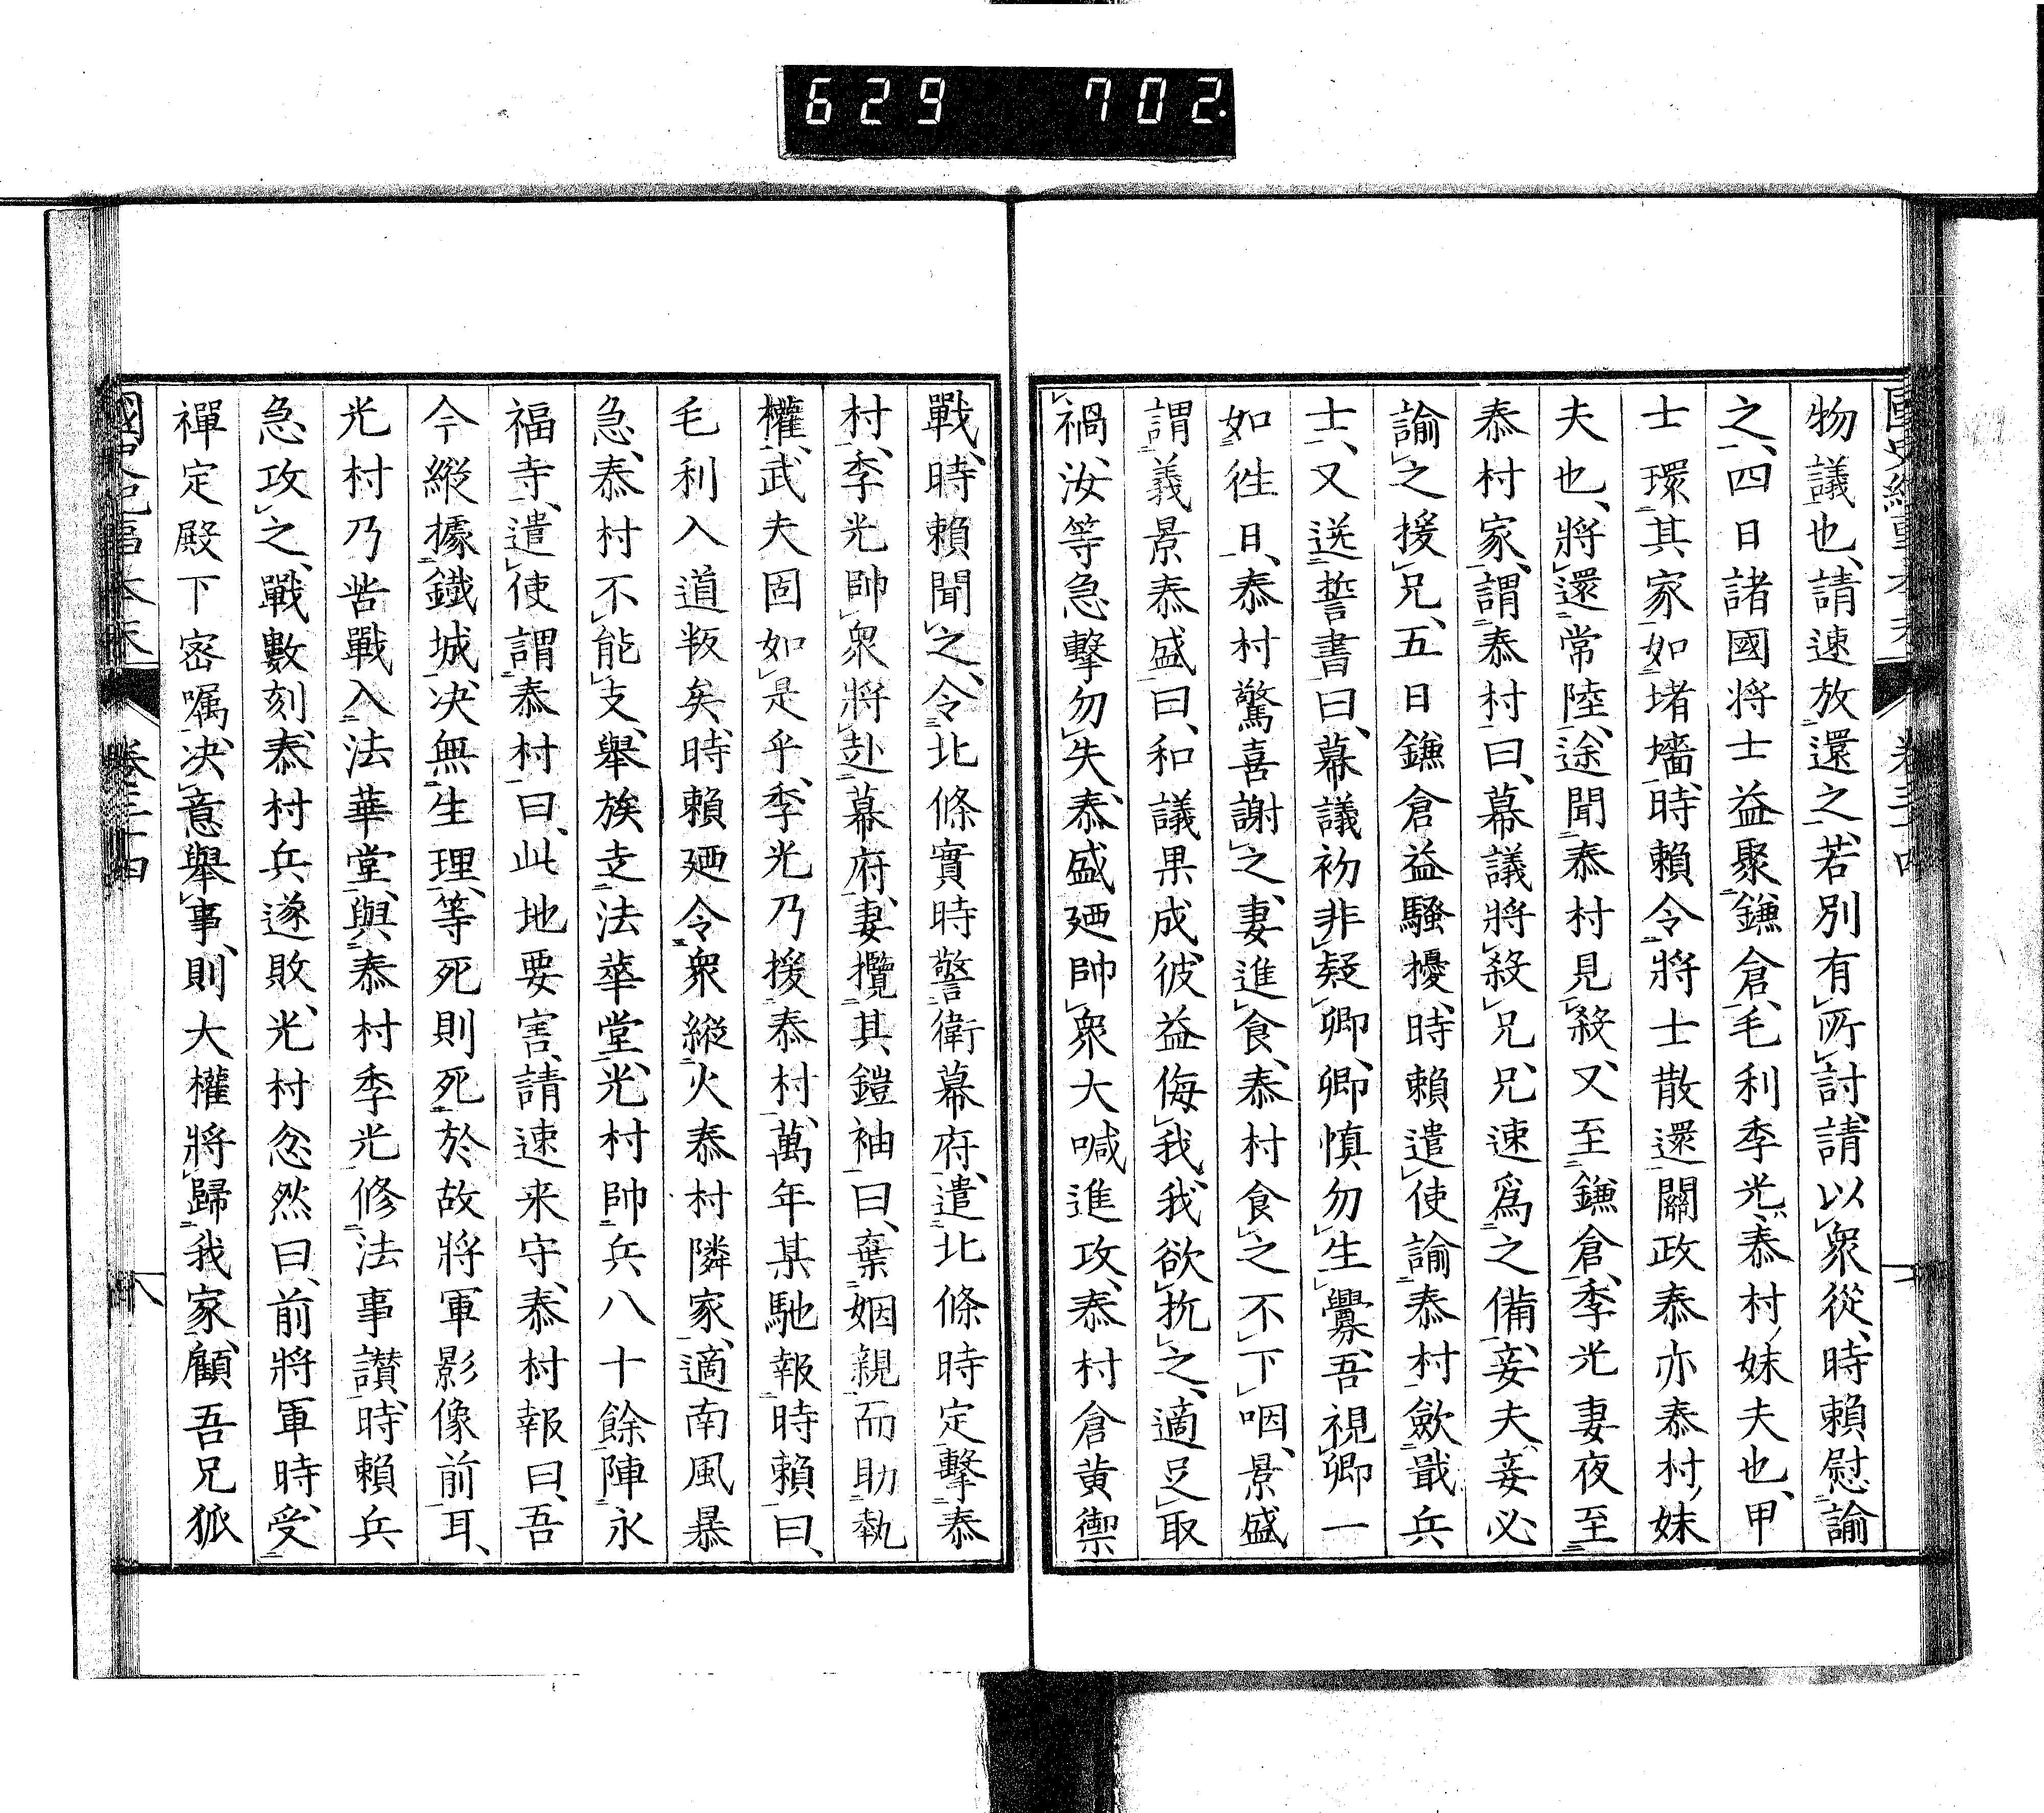 629 702
物議也、請速放還之、若別有所討、請以衆從、時賴慰諭
之、四日諸國將士益聚鎌倉、毛利季光、泰村妹夫也、甲
士環其家如堵墻、時賴令將士散還、關政泰亦泰村妹
夫也、將還常陸、途聞泰村見殺、又至鎌倉、季光妻夜至
泰村家、謂泰村曰、幕議將殺兄、兄速爲之備、妾夫、妾必
諭之援兄、五日鎌倉益騷擾、時賴遣使諭泰村歛戢兵
士、又送誓書曰、幕議初非疑卿、卿愼勿生釁、吾視卿一
如徃日、泰村驚喜謝之、妻進食、泰村食之不下咽、景盛
謂義景泰盛曰、和議果成、彼益侮我、我欲抗之、適足取
禍、汝等急擊勿失、泰盛廼帥衆大喊進攻、泰村倉黄禦
戰、時賴聞之、令北條實時警衛幕府、遣北條時定擊泰
村、季光帥衆將赴幕府、妻攬其鎧袖曰、棄姻親而助執
權、武夫固如是乎、季光乃援泰村、萬年某馳報時賴曰、
毛利入道叛矣、時賴廼令衆縱火泰村隣家、適南風暴
急、泰村不能支、舉族走法華堂、光村帥兵八十餘陣永
福寺、遣使謂泰村曰、此地要害、請速来守、泰村報曰、吾
今縱據鐵城、决無生理、等死則死於故將軍影像前耳、
光村乃苦戰入法華堂、與泰村季光修法事讃、時賴兵
急攻之、戰數刻、泰村兵遂敗、光村忿然曰、前將軍時、受
禪定殿下密嘱、决意舉事、則大權將歸我家、顧吾兄狐
卷三十四
八